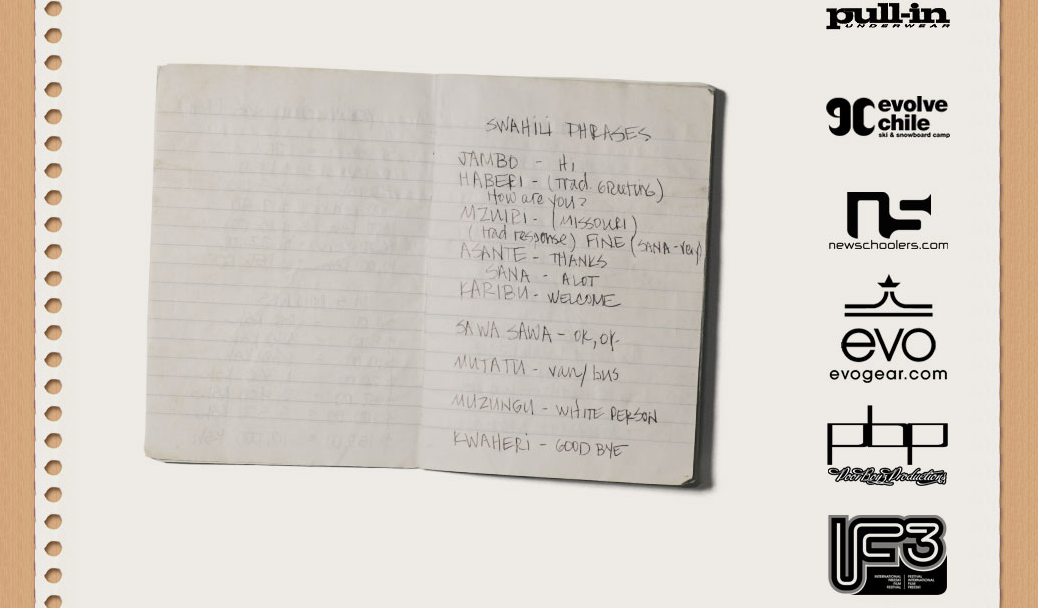 SWAHILI PHRASES
JAMBO - Hi
HABERI - (trad. GREETING)
How are you?
MZURI - (MISSOURI)
(trad response) FINE (SANA - very)
ASANTE - THANKS
SANA - ALOT
KARIBU - WELCOME
SAWA SAWA - OK, OK
MUTATU - van/bus
MUZUNGU - WHITE PERSON
KWAHERI - GOOD BYE
pull-in
UNDERWEAR
evolve
chile
ski & snowboard camp
ns
newschoolers.com
evo
evogear.com
pbp
PoorBoyz Productions
IF3
INTERNATIONAL FREESKI FILM FESTIVAL
FESTIVAL INTERNATIONAL FILM FREESKI